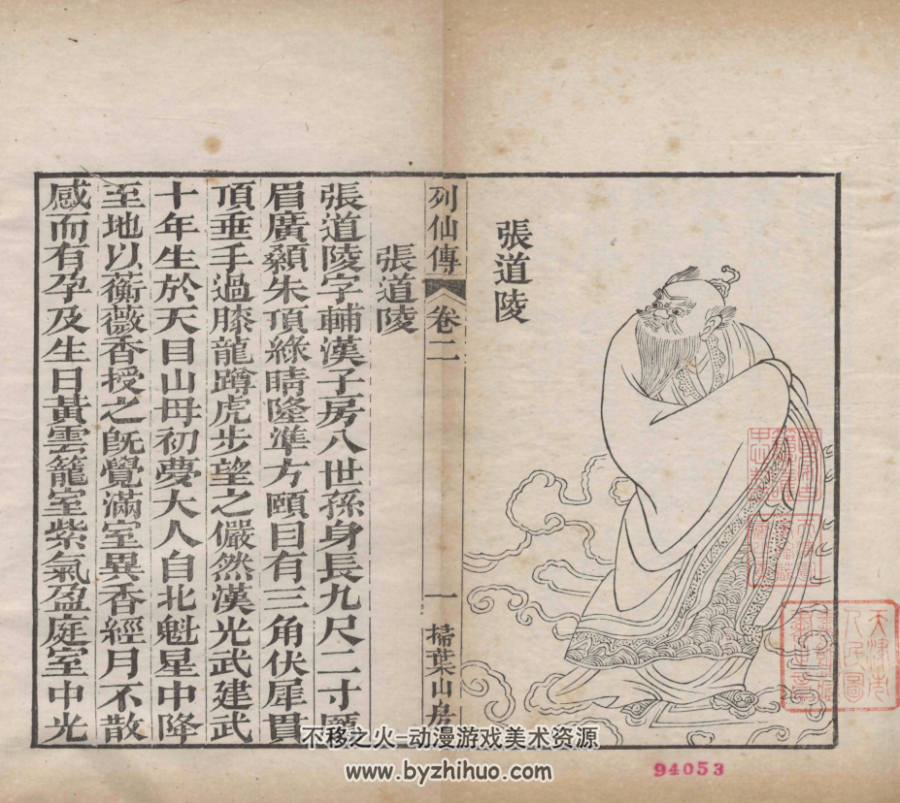 張道陵
列仙傳
卷二
一
掃葉山房
張道陵
張道陵字輔漢子房八世孫身長九尺二寸龐
眉廣顙朱頂綠睛隆準方頤目有三角伏犀貫
頂垂手過膝龍蹲虎步望之儼然漢光武建武
十年生於天目山母初夢大人自北魁星中降
至地以蘅薇香授之旣覺滿室異香經月不散
感而有孕及生日黃雲籠室紫氣盈庭室中光
天津市
人民圖
不移之火-动漫游戏美术资源
www.byzhihuo.com
94053